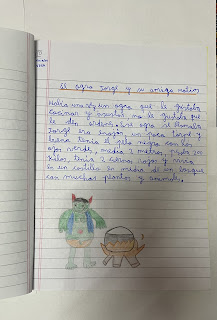 El ogro Jorge y su amigo Matias
Habia una vez un ogro que le gustaba
cocinar y asustar, no le gustaba que
le den ordenes. Ese ogro se llamaba
Jorge era gruñón, un poco torpe y
tenia el pelo negro con los
ojos verdes, media 3 metros, pesaba 200
kilos, tenía 2 cuernos rojos y vivia
en un castillo en medio de un bosque
con muchas plantas y animales.